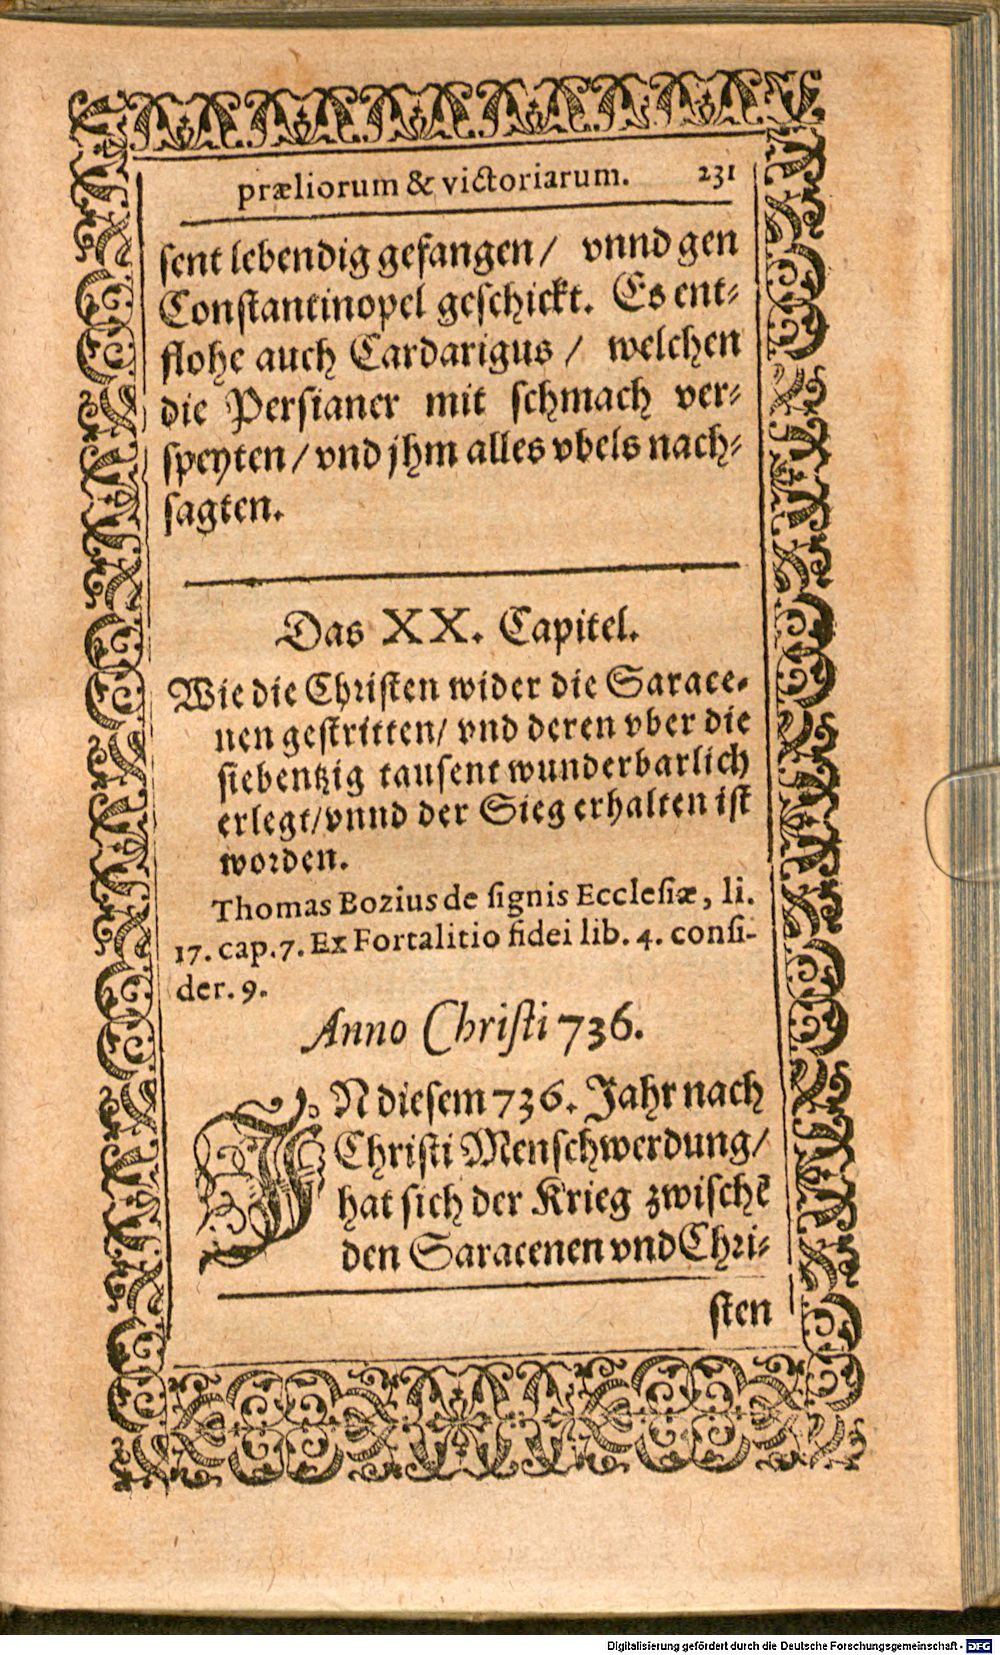 præliorum & victoriarum. 231
sent lebendig gefangen/ vnnd gen
Constantinopel geschickt. Es ent-
flohe auch Cardarigus/ welchen
die Persianer mit schmach ver-
speyten/vnd jhm alles vbels nach-
sagten.
Das XX. Capitel.
Wie die Christen wider die Sarace-
nen gestritten/ vnd deren vber die
siebentzig tausent wunderbarlich
erlegt/vnnd der Sieg erhalten ist
worden.
Thomas Bozius de signis Ecclesiæ, li.
17. cap.7. Ex Fortalitio fidei lib. 4. consi-
der. 9.
Anno Christi 736.
IN diesem 736. Jahr nach
Christi Menschwerdung/
hat sich der Krieg zwischē
den Saracenen vnd Chri-
sten
Digitalisierung gefördert durch die Deutsche Forschungsgemeinschaft - DFG